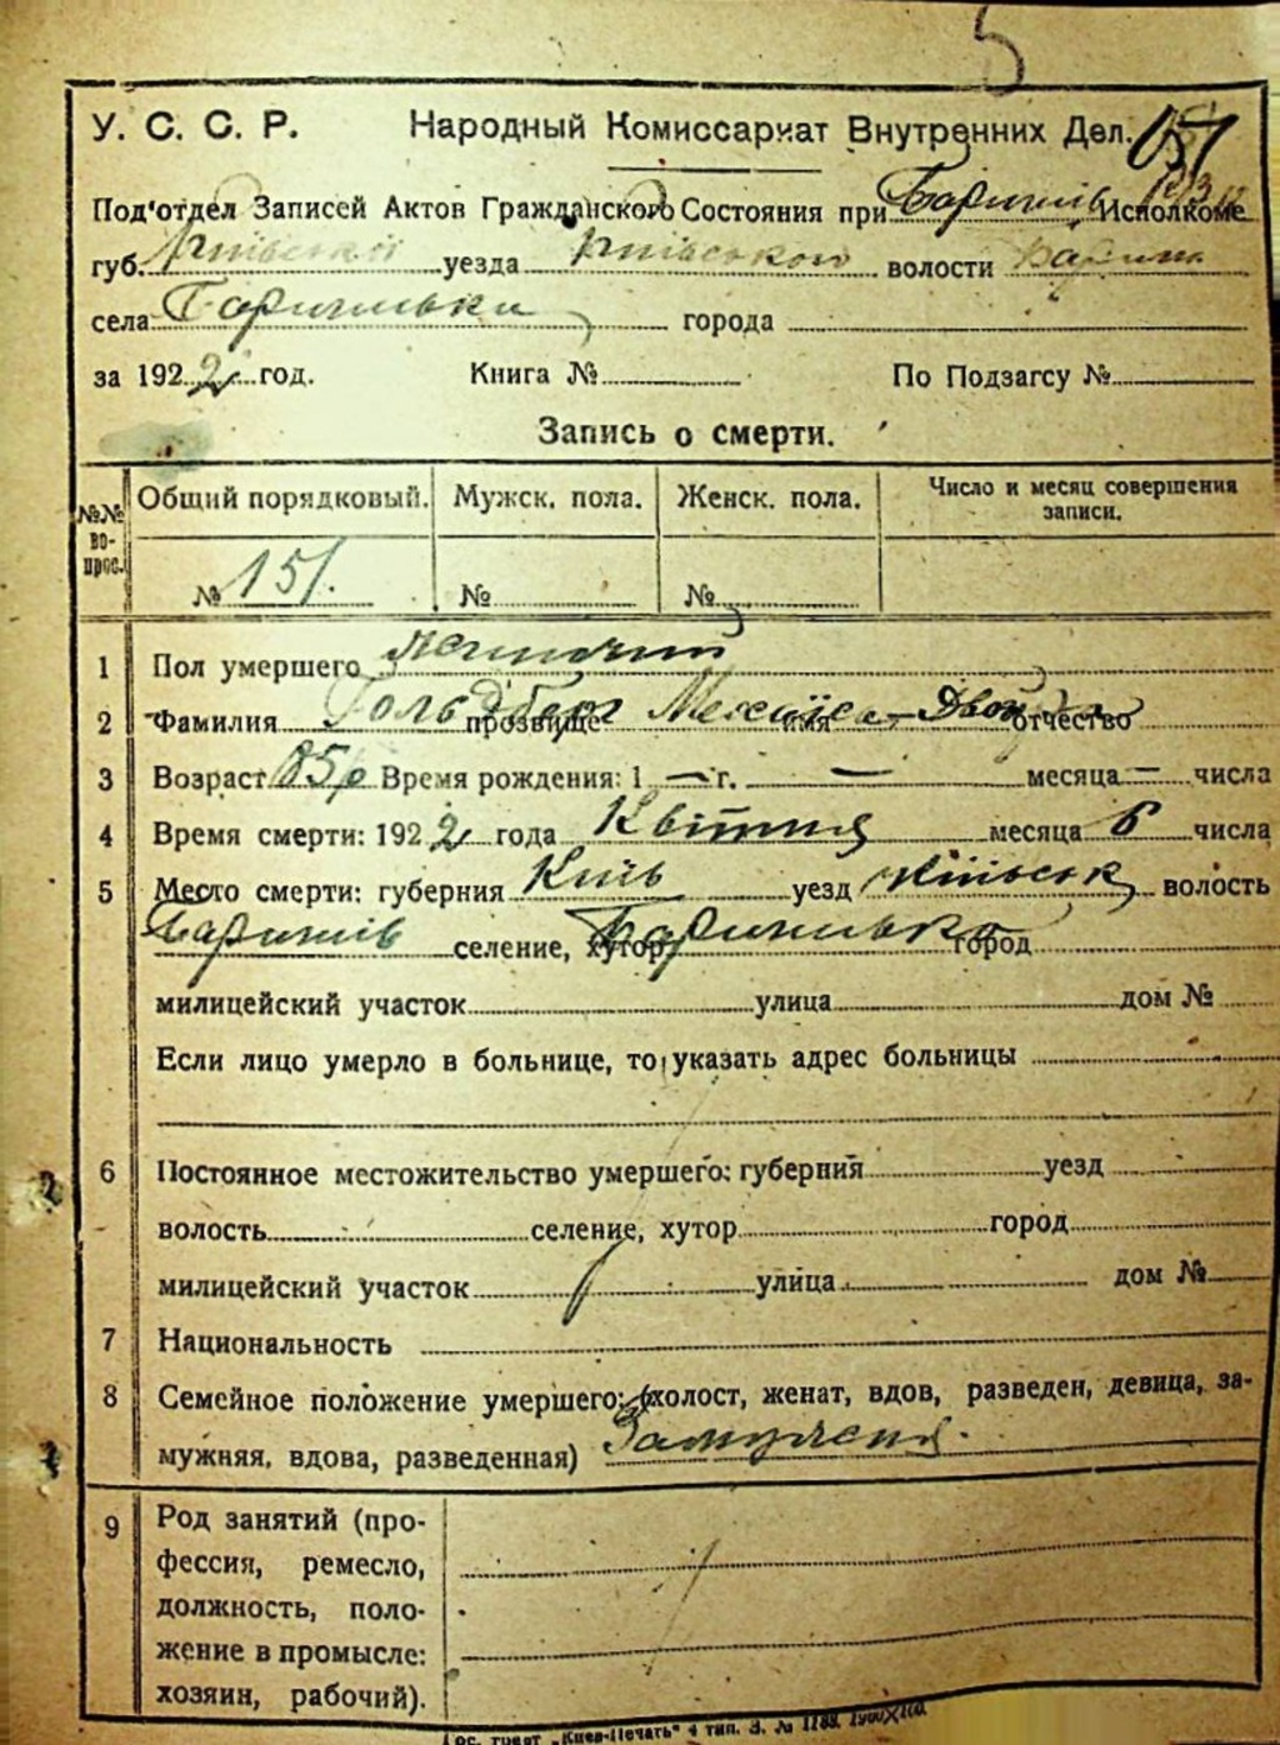 5
У. С. С. Р. Народный Комиссариат Внутренних Дел.
Под'отдел Записей Актов Гражданского Состояния при Баришів Исполкоме
губ. Київської уезда Київського волости Бариш
села Баришівки города
за 1922 год. Книга № По Подзагсу №
Запись о смерти.
№№ во- прос. Общий порядковый. Мужск. пола. Женск. пола. Число и месяц совершения записи.
№ 151. № №
1 Пол умершего жіночий
2 Фамилия Гольдберг прозвище имя отчество
3 Возраст 85 р Время рождения: 1 — г. — месяца — числа
4 Время смерти: 1922 года Квітня месяца 6 числа
5 Место смерти: губерния Київ уезд Київськ волость
Баришів селение, хутор Баришівка город
милицейский участок улица дом №
Если лицо умерло в больнице, то указать адрес больницы
6 Постоянное местожительство умершего: губерния уезд
волость селение, хутор город
милицейский участок улица дом №
7 Национальность
8 Семейное положение умершего: (холост, женат, вдов, разведен, девица, за-
мужняя, вдова, разведенная) Замужня.
9 Род занятий (про-
фессия, ремесло,
должность, поло-
жение в промысле:
хозяин, рабочий).
Гос. трест „Киев-Печать" 4 тип. З. № 1188.